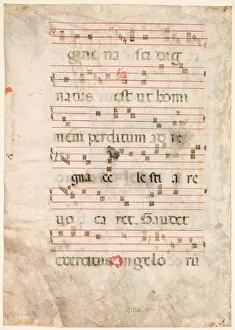 gine na sci dig
natus est ut homi
nem perditum ad re
gna ce le sti a re
uo ca ret. Gaudet
exercitus angelo rū